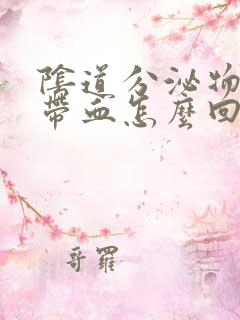 陰道分泌物
帶血怎麼回
哥羅